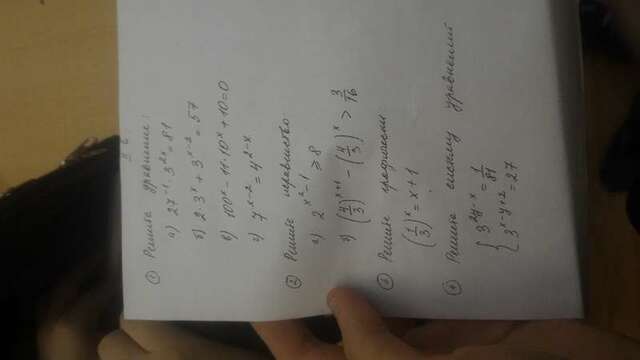 ① Решите уравнение:
а) 27⁻¹·3²ˣ=81
б) 2·3ˣ+3ˣ⁻²=57
в) 100ˣ-11·10ˣ+10=0
г) 7ˣ⁻²=4²⁻ˣ
② Решите неравенство
а) 2^(x²-1) ≥ 8
б) (4/3)ˣ⁺¹-(4/3)ˣ > 3/16
③ Решите графически
(1/3)ˣ=x+1
④ Решите систему уравнений
{ 3²ʸ⁻ˣ=1/81
3ˣ⁻ʸ⁺²=27